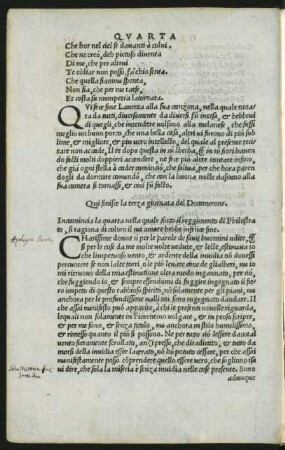 QVARTA
Che hor nel ciel se dauanti à colui,
Che ne creò, deh pietoso diuenta
Di me, che per altrui
Te obliar non posso, fa ch'io senta,
Che quella fiamma spenta
Non sia, che per me t'arse,
Et costa su m'impetra la tornata.
QVi fece fine Lauretta alla sua canzone, nella quale nota-
ta da tutti, diuersamente da diuersi fu intesa, & hebbeui
di quegli, che intendere uollono alla melanese, che fosse
meglio un buon porco, che una bella tosa, altri ui furono di piu sub
lime, & migliore, & piu uero intelletto, del quale al presente reci-
tare non accade. Il re dopo questa su l'herba, & in su fiori hauen
do fatti molti doppieri accendere, ne fece piu altre cantare infino
che gia ogni stella à cader cominciò, che salia, per che hora paren
dogli da dormire comandò, che con la buona notte ciascuno alla
sua camera si tornasse, & cosi fu fatto.
Qui finisce la terza giornata del Decamerone.
Incomincia la quarta nella quale sotto il reggimento di Philostra
to, si ragiona di coloro li cui amori hebbero infelice fine.
CHarissime donne si per le parole de saui huomini udite, & si
per le cose da me molte uolte uedute, & lette, estimaua io
che lo'mpetuoso uento, & ardente della inuidia non douesse
percuotere se non l'alte torri, o le piu leuate cime de gli alberi, ma io
mi ritruouo della mia estimatione oltra modo ingannato, per cio,
che fuggendo io, & sempre essendomi di fuggire ingegnato il fie-
ro impeto di questo rabbioso spirito, nò solamente per gli piani, ma
anchora per le profondissime ualli mi sono ingegnato d'andare. Il
che assai manifesto può apparire, à chi le presenti nouellette riguarda,
lequali non solamente in Fiorentino uolgare, & in prosa scripte,
& per me sono, & senza titolo, ma anchora in stilo humilissimo,
& rimesso quanto il piu si possono. Ne per tutto ciò l'essere da cotal
uento fieramente scrollato, anzi presso, che diradicato, & tutto da
morsi della inuidia esser lacerato, nò hò potuto cessare, per che assai
manifestamente posso comprendere quello essere uero, che sogliono i sa
ui dire, che sola la miseria è senza inuidia nelle cose presenti. Sono
adunque